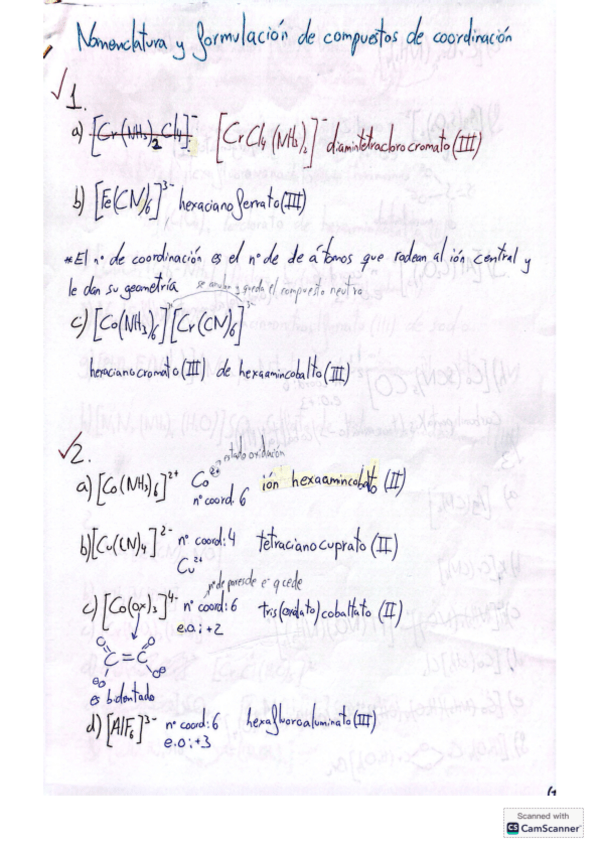 Nomenclatura y formulación de compuestos de coordinación
√1.
a) [Cr(NH₃)₂Cl₄]⁻ [CrCl₄(NH₃)₂]⁻ diamintetraclorocromato(III)
b) [Fe(CN)₆]³⁻ hexacianoferrato(III)
*El nº de coordinación es el nº de de átomos que rodean al ión central y
le dan su geometría se anulan y queda el compuesto neutro
c) [Co(NH₃)₆][Cr(CN)₆]³⁻
hexacianocromato(III) de hexaamincobalto(III)
√2.
estado oxidación
a) [Co(NH₃)₆]²⁺ Co²⁺ ión hexaamincobalto (II)
nº coord. 6
b) [Cu(CN)₄]²⁻ nº coord: 4 tetracianocuprato (II)
Cu²⁺
nº de pares de e⁻ q cede
c) [Co(ox)₃]⁴⁻ nº coord: 6 tris(oxalato)cobaltato (II)
e.o: +2
O O
C = C
⊖O O⊖
es bidentado
d) [AlF₆]³⁻ nº coord: 6 hexafluoroaluminato(III)
e.o: +3
Scanned with
CS CamScanner